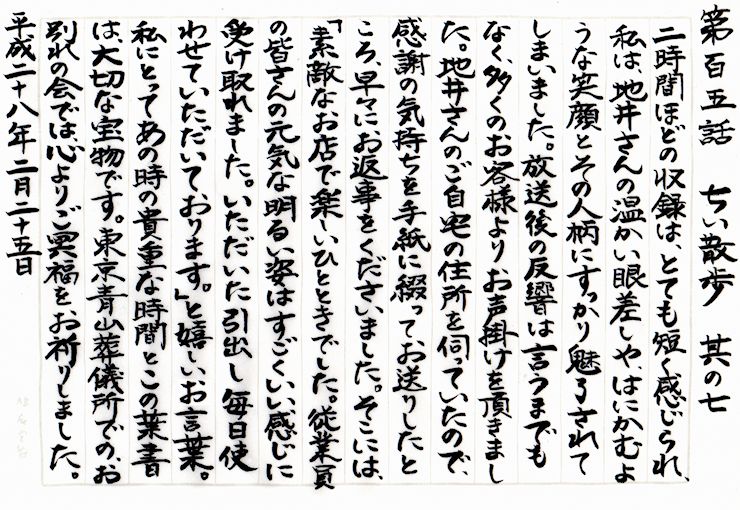 第百五話 ちい散歩 其の七
二時間ほどの収録は、とても短く感じられ、
私は、地井さんの温かい眼差しや、はにかむよ
うな笑顔とその人柄にすっかり魅了されて
しまいました。放送後の反響は言うまでも
なく、多くのお客様よりお声掛けを頂きまし
た。地井さんのご自宅の住所を伺っていたので、
感謝の気持ちを手紙に綴ってお送りしたと
ころ、早々にお返事をくださいました。そこには、
「素敵なお店で楽しいひとときでした。従業員
の皆さんの元気な明るい姿はすごくいい感じに
受け取れました。いただいた引出し毎日使
わせていただいております。」と嬉しいお言葉。
私にとってあの時の貴重な時間とこの葉書
は、大切な宝物です。東京青山葬儀所での、お
別れの会では、心よりご冥福をお祈りしました。
平成二十八年二月二十五日